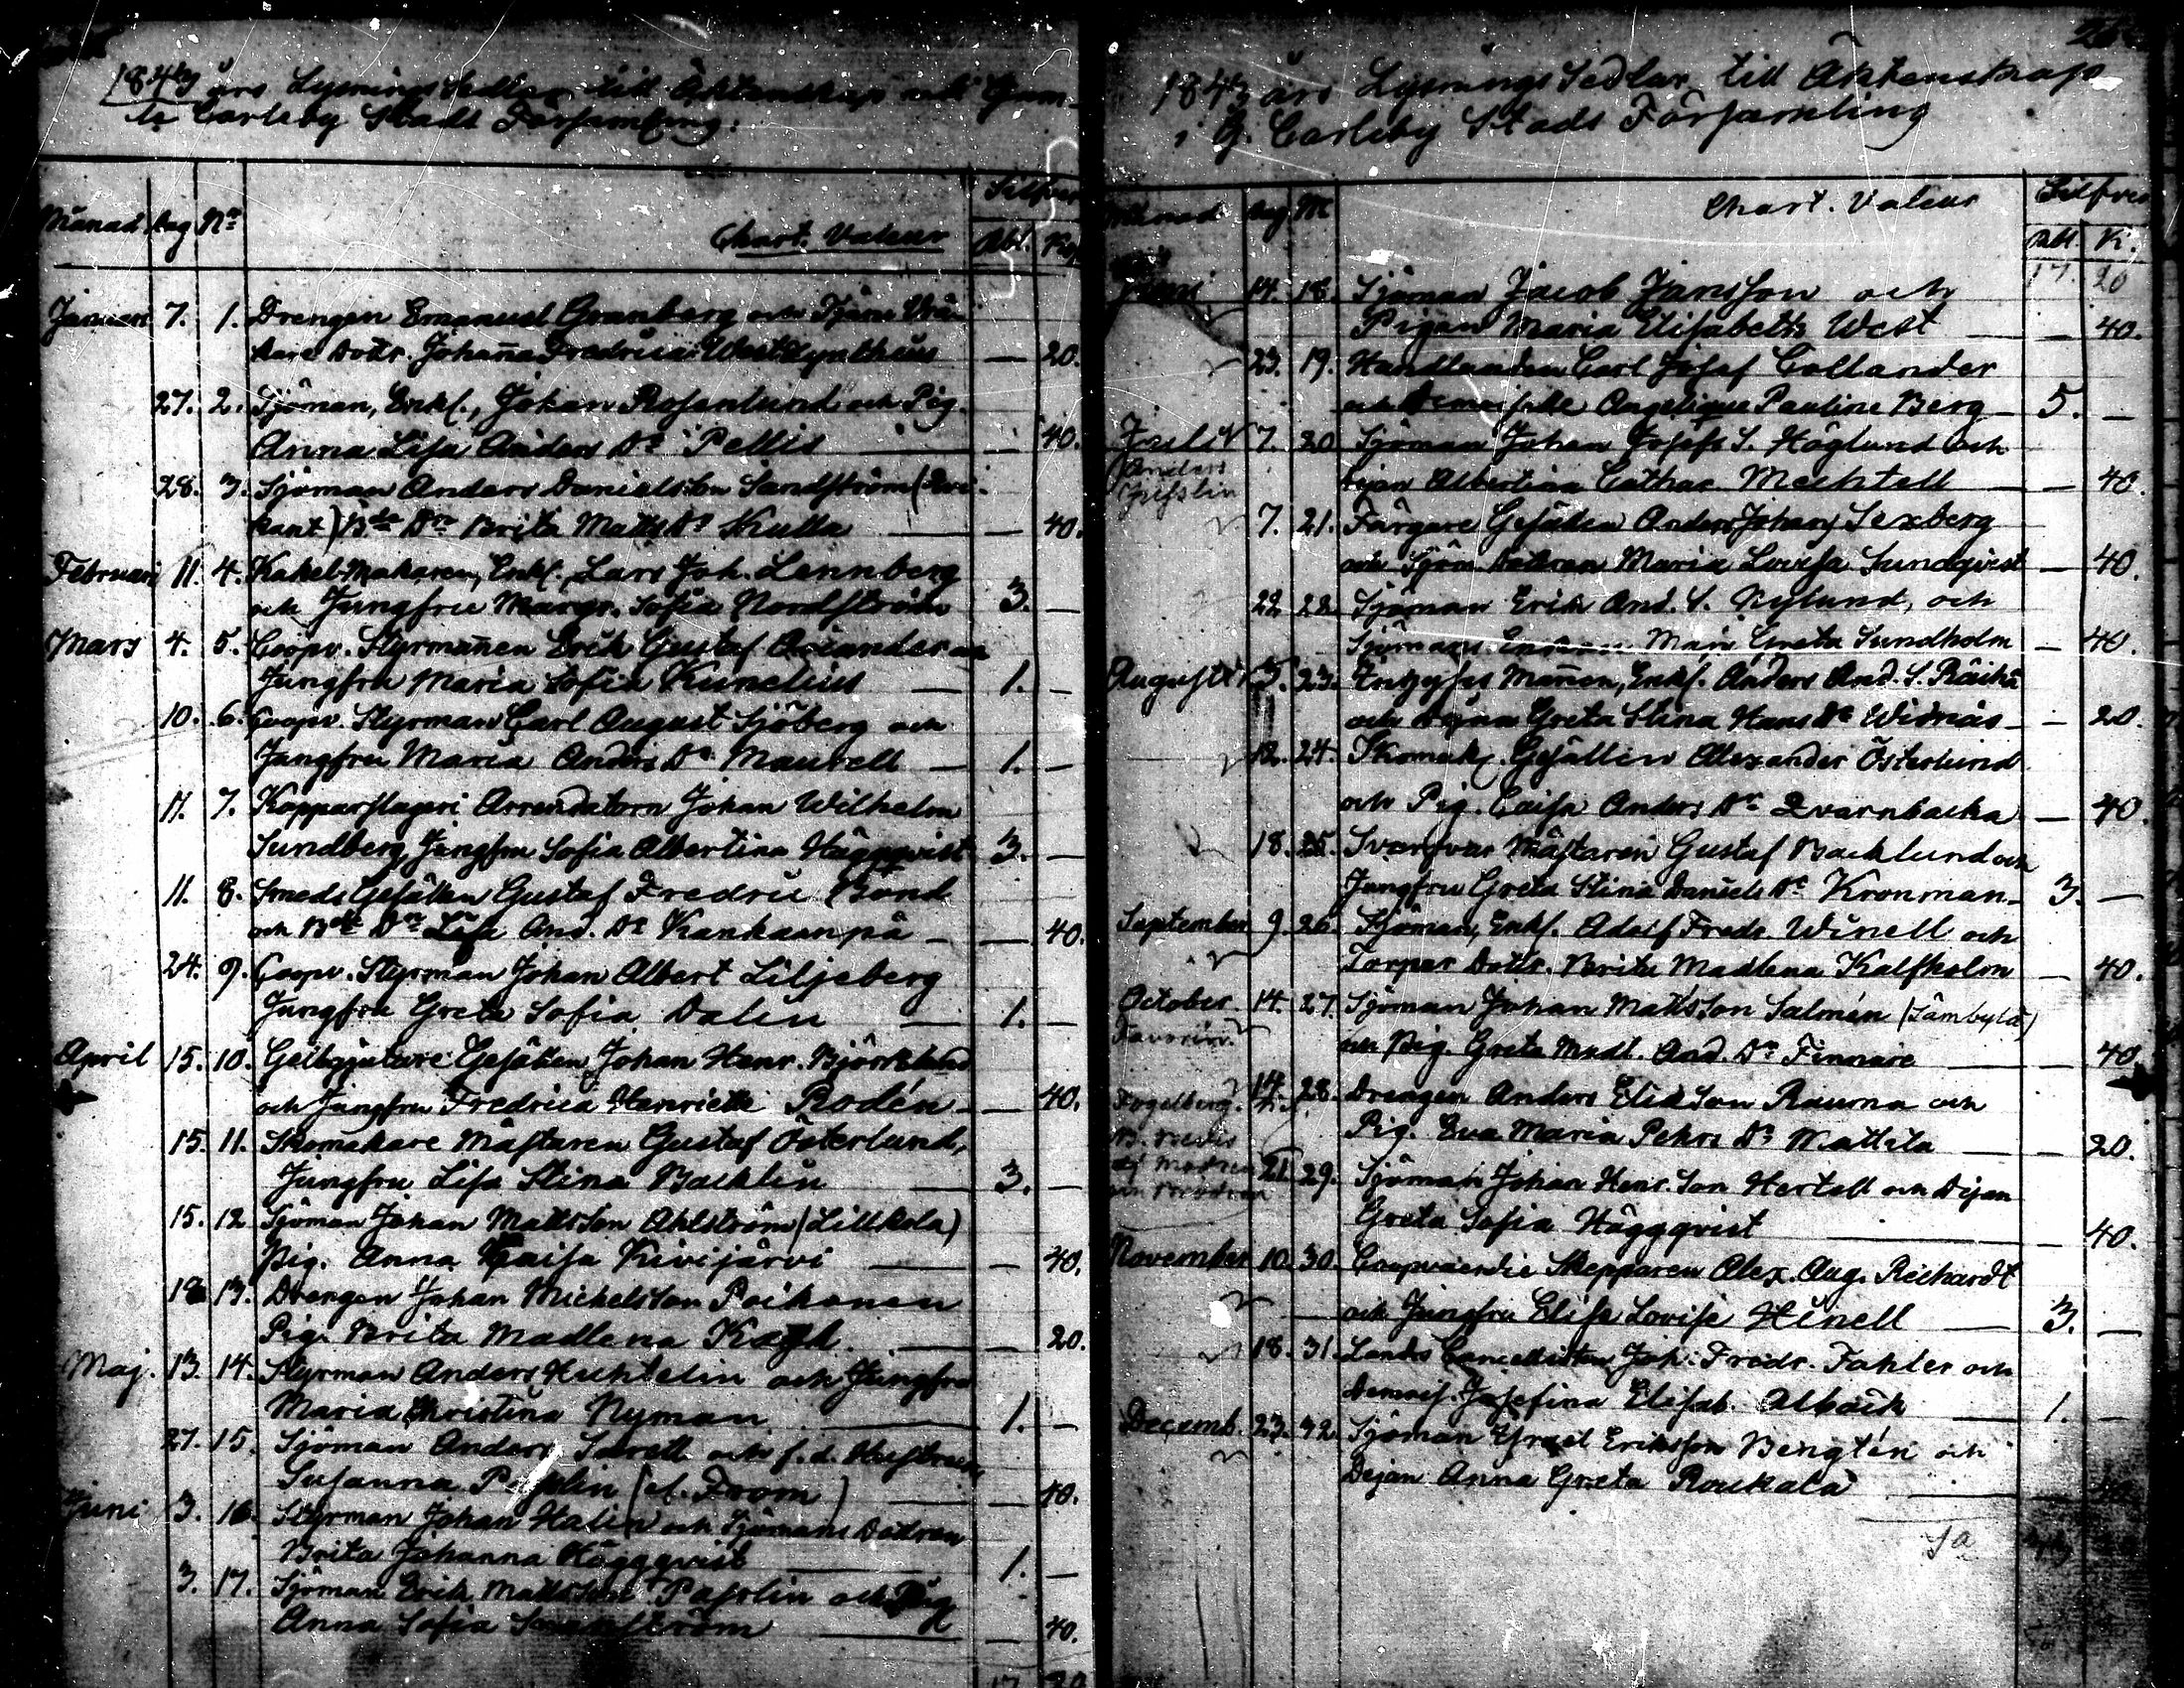 1843 års Lysnings Sedlar till Äktenskap uti Gam-
la Carleby Stads Församling:
Månad Dag No Chart. Valeur Silfver
Rbl. Kop.
Januari 7. 1. Drengen Emanuel Granberg och Tjäru
kare Dottr. Johanna Fredrica — 20.
27. 2. Sjöman, Enkl., Johan Rosenlund och Pig.
Anna Lisa Anders Dr Pellis — 40.
28. 3. Sjöman Anders Danielsson Sandström
Brita Matts Dr Kulla — 40.
Februari 11. 4. Kakel Makaren, Enkl., Lars Joh. Lennberg
och Jungfru Margr. Sofia Nordström 3. —
Mars 4. 5. Coopv. Styrmannen Erik Gustaf
Jungfru Maria Sofia Kunelius — 1. —
10. 6. Coopv. Styrman Carl August Sjöberg och
Jungfru Maria Anders Dr Maurell — 1. —
11. 7. Kopparslageri Arrendatorn Johan Wilhelm
Sundberg, Jungfru Sofia Albertina Häggqvist 3. —
11. 8. Smeds Gesällen Gustaf Fredric Bond
och Lisa And. Dr Kankaanpä — 40.
24. 9. Coopv. Styrman Johan Albert Liljeberg
Jungfru Greta Sofia Dalin — 1. —
April 15. 10. Gelbgjutare Gesällen Johan Henr. Björklund
och Jungfru Fredrica Henriette Rodén — 40.
15. 11. Skomakare Mästaren Gustaf Österlund,
Jungfru Lisa Stina Backlin — 3. —
15. 12. Sjöman Johan Mattsson Ahlström (Lillkola)
Pig. Anna Caisa Kivijärvi — 40.
13. Drengen Johan Mickelsson Poikonen
Pig. Brita Madlena — 20.
Maj. 13. 14. Styrman Anders Huhtelin och Jungfru
Maria Christina Nyman — 1. —
27. 15. Sjöman Anders och f.d.
Susanna (ef. From) — 40.
Juni 3. 16. Styrman Johan Halin och Sjömans Dottren
Brita Johanna Häggqvist — 1. —
3. 17. Sjöman Erik Mattsson och Pig
Anna Sofia — 40.
17. 20
1843 års Lysnings Sedlar till Äktenskap
i G. Carleby Stads Församling
Månad Dag No Chart. Valeur Silfver
Rbl. K.
17. 20
Juni 14. 18. Sjöman Jacob Jansson och
Pigan Maria Elisabeth West — 40.
23. 19. Handlanden Carl Josef Collander
och Demoiselle Angelique Pauline Berg — 5. —
Juli 7. 20. Sjöman Johan Josefs S. Höglund och
Pigan Albertina Cathar. Mechtell — 40.
Anders
7. 21. Färgare Gesällen Anders Johan Sexberg
och Sjöm. Dottren Maria Lovisa Sundqvist — 40.
22. 22. Sjöman Erik And. S. Nylund, och
Sjömans Enkan Maria Greta Sundholm — 40.
Augusti 5. 23. Enkl. Anders And. S. Räihä
och Pigan Greta Stina Hans Dr Widnäs — 20.
12. 24. Skomak. Gesällen Alexander Österlund
och Pig. Caisa Anders Dr Qvarnbacka — 40.
18. 25. Svarfvar Mästaren Gustaf Backlund och
Jungfru Greta Stina Daniels Dr Kronman — 3. —
September 9. 26. Sjöman, Enkl. Adolf Fredr. Winell och
Torpar Dottr. Brita Madlena Kalfholm — 40.
October 14. 27. Sjöman Johan Mattsson Salmén (Såmbylä)
Favorin. och Pig. Greta Madl. And. Dr Finnare — 40.
Fogelberg. 14. 28. Drengen Anders Erikson Rauma och
Pig. Eva Maria Pehrs Dr Mattila — 20.
21. 29. Sjöman Johan Henr. Son Hertell och Pigan
Greta Sofia Häggqvist — 40.
November 10. 30. Coopvaerdie Skepparen Alex. Aug. Reichardt
och Jungfru Elise Lovise Hinell — 3. —
18. 31. Lands Cancellisten Joh. Fredr. Fahler och
Demois. Josefina Elisab. Albäck — 1. —
Decemb. 23. 32. Sjöman Israel Eriksson Bengtén och
Pigan Anna Greta Roukala —
Sa